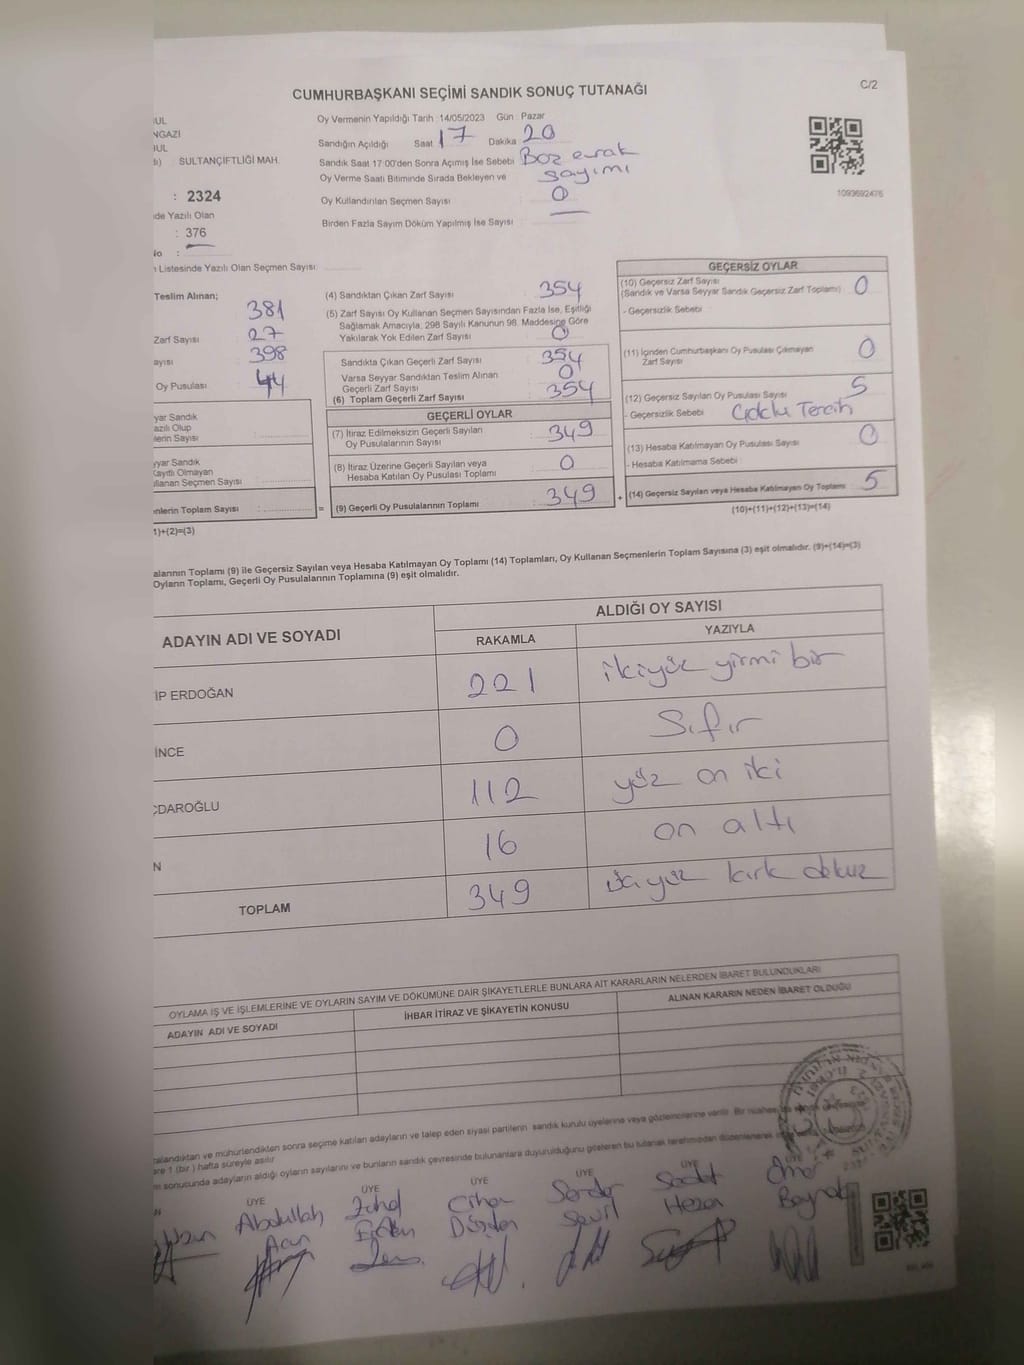 C/2
CUMHURBAŞKANI SEÇİMİ SANDIK SONUÇ TUTANAĞI
UL
NGAZI
UL
SULTANÇİFTLİĞİ MAH.
: 2324
de Yazılı Olan
: 376
No :
Listesinde Yazılı Olan Seçmen Sayısı
Oy Vermenin Yapıldığı Tarih :14/05/2023 Gün : Pazar
Sandığın Açıldığı Saat 17 Dakika 20
Sandık Saat 17:00'den Sonra Açımış İse Sebebi Boz evrak
sayımı
Oy Verme Saati Bitiminde Sırada Bekleyen ve
Oy Kullandırılan Seçmen Sayısı 0
Birden Fazla Sayım Döküm Yapılmış İse Sayısı
1093692476
Teslim Alınan;
381
Zarf Sayısı 27
ayısı 398
Oy Pusulası 44
yar Sandık
azılı Olup
lerin Sayısı
yyar Sandık
Kayıtlı Olmayan
llanan Seçmen Sayısı
nlerin Toplam Sayısı : =
1)+(2)=(3)
(4) Sandıktan Çıkan Zarf Sayısı 354
(5) Zarf Sayısı Oy Kullanan Seçmen Sayısından Fazla İse, Eşitliği
Sağlamak Amacıyla, 298 Sayılı Kanunun 98. Maddesine Göre
Yakılarak Yok Edilen Zarf Sayısı 0
Sandıkta Çıkan Geçerli Zarf Sayısı 354
Varsa Seyyar Sandıktan Teslim Alınan
Geçerli Zarf Sayısı 0
(6) Toplam Geçerli Zarf Sayısı 354
GEÇERLİ OYLAR
(7) İtiraz Edilmeksizin Geçerli Sayılan
Oy Pusulalarının Sayısı 349
(8) İtiraz Üzerine Geçerli Sayılan veya
Hesaba Katılan Oy Pusulası Toplamı 0
(9) Geçerli Oy Pusulalarının Toplamı 349 +
GEÇERSİZ OYLAR
(10) Geçersiz Zarf Sayısı
(Sandık ve Varsa Seyyar Sandık Geçersiz Zarf Toplamı) 0
- Geçersizlik Sebebi
(11) İçinden Cumhurbaşkanı Oy Pusulası Çıkmayan
Zarf Sayısı 0
(12) Geçersiz Sayılan Oy Pusulası Sayısı 5
- Geçersizlik Sebebi Çoklu Tercih
(13) Hesaba Katılmayan Oy Pusulası Sayısı 0
- Hesaba Katılmama Sebebi
(14) Geçersiz Sayılan veya Hesaba Katılmayan Oy Toplamı 5
(10)+(11)+(12)+(13)=(14)
alarının Toplamı (9) ile Geçersiz Sayılan veya Hesaba Katılmayan Oy Toplamı (14) Toplamları, Oy Kullanan Seçmenlerin Toplam Sayısına (3) eşit olmalıdır. (9)+(14)=(3)
Oyların Toplamı, Geçerli Oy Pusulalarının Toplamına (9) eşit olmalıdır.
ADAYIN ADI VE SOYADI
ALDIĞI OY SAYISI
RAKAMLA YAZIYLA
İP ERDOĞAN 221 ikiyüz yirmi bir
İNCE 0 Sıfır
ÇDAROĞLU 112 yüz on iki
N 16 on altı
TOPLAM 349 üçyüz kırk dokuz
OYLAMA İŞ VE İŞLEMLERİNE VE OYLARIN SAYIM VE DÖKÜMÜNE DAİR ŞİKAYETLERLE BUNLARA AİT KARARLARIN NELERDEN İBARET BULUNDUKLARI
ADAYIN ADI VE SOYADI İHBAR İTİRAZ VE ŞİKAYETİN KONUSU ALINAN KARARIN NEDEN İBARET OLDUĞU
alandıktan ve mühürlendikten sonra seçime katılan adayların ve talep eden siyasi partilerin sandık kurulu üyelerine veya gözlemcilerine verilir. Bir nüshası
re 1 (bir ) hafta süreyle asılır.
m sonucunda adayların aldığı oyların sayılarını ve bunların sandık çevresinde bulunanlara duyurulduğunu gösteren bu tutanak tarafımızdan düzenlenerek
ÜYE ÜYE ÜYE ÜYE ÜYE ÜYE
Abdullah Zahid Cihan Serdar Sedat Ömer
Acun Düzden Sevil Hezer Bayrak